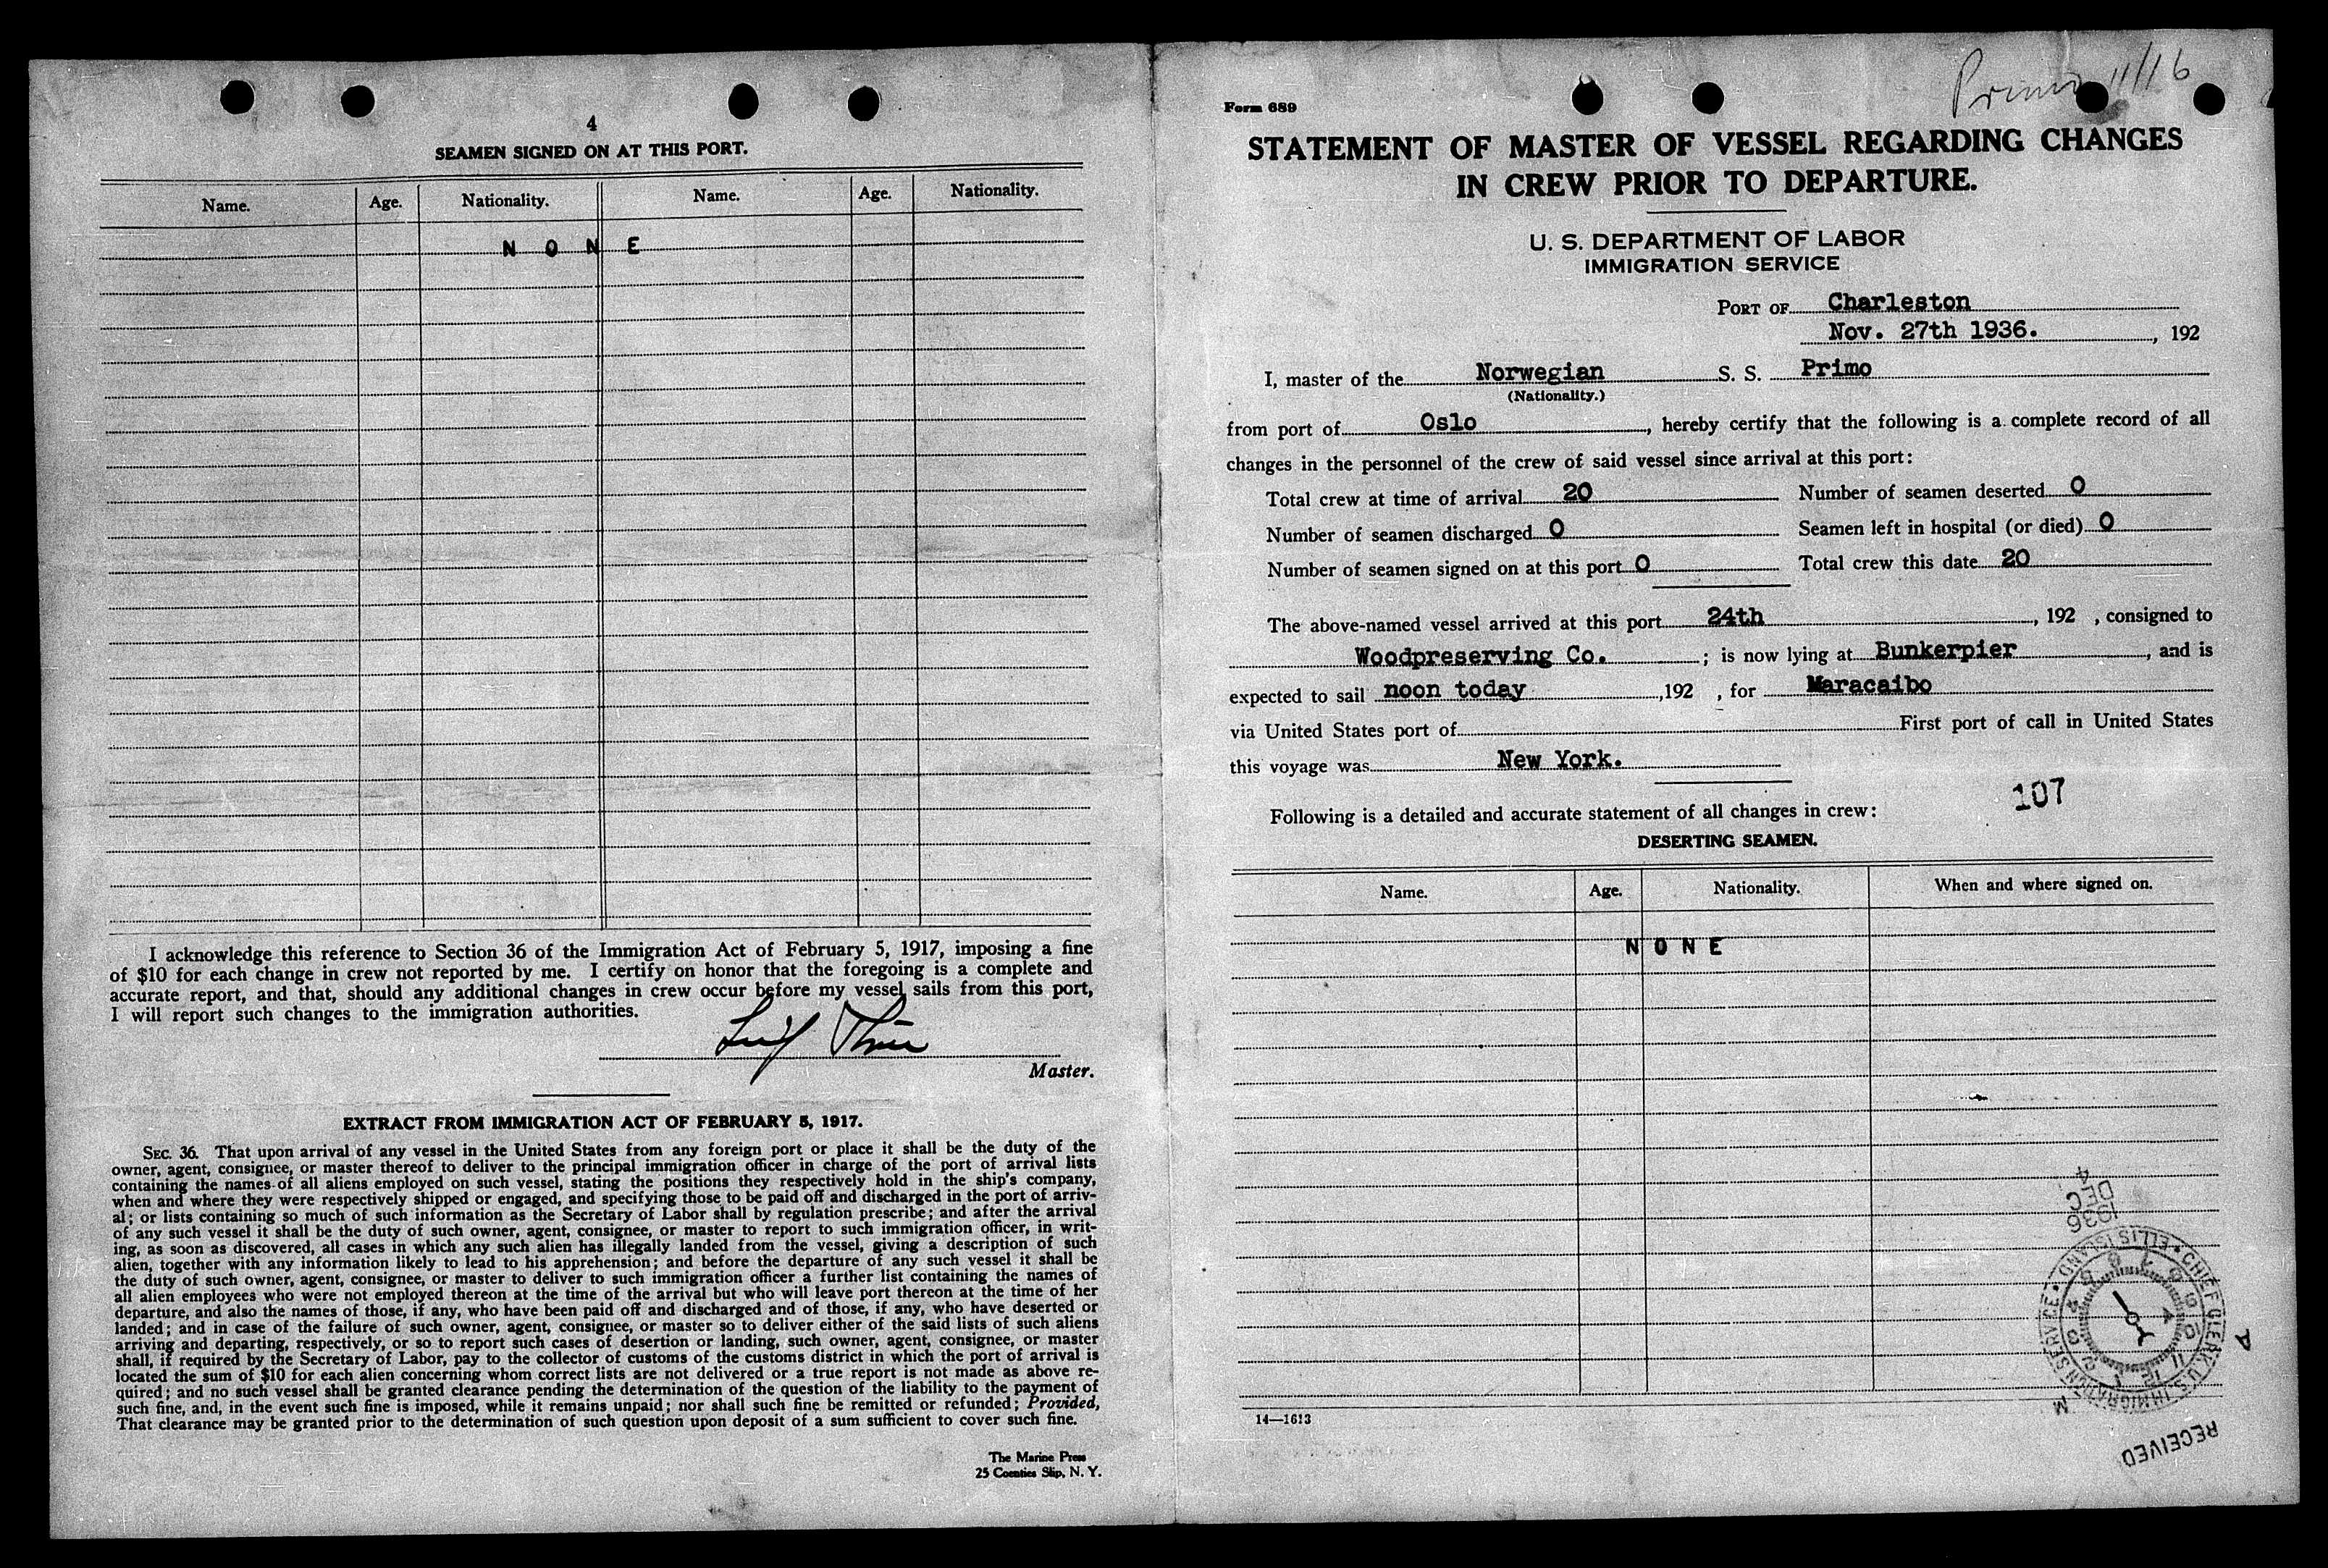 4
SEAMEN SIGNED ON AT THIS PORT.
Name. Age. Nationality. Name. Age. Nationality.
N O N E
I acknowledge this reference to Section 36 of the Immigration Act of February 5, 1917, imposing a fine
of $10 for each change in crew not reported by me. I certify on honor that the foregoing is a complete and
accurate report, and that, should any additional changes in crew occur before my vessel sails from this port,
I will report such changes to the immigration authorities.
Master.
EXTRACT FROM IMMIGRATION ACT OF FEBRUARY 5, 1917.
SEC. 36. That upon arrival of any vessel in the United States from any foreign port or place it shall be the duty of the
owner, agent, consignee, or master thereof to deliver to the principal immigration officer in charge of the port of arrival lists
containing the names of all aliens employed on such vessel, stating the positions they respectively hold in the ship's company,
when and where they were respectively shipped or engaged, and specifying those to be paid off and discharged in the port of arriv-
al; or lists containing so much of such information as the Secretary of Labor shall by regulation prescribe; and after the arrival
of any such vessel it shall be the duty of such owner, agent, consignee, or master to report to such immigration officer, in writ-
ing, as soon as discovered, all cases in which any such alien has illegally landed from the vessel, giving a description of such
alien, together with any information likely to lead to his apprehension; and before the departure of any such vessel it shall be
the duty of such owner, agent, consignee, or master to deliver to such immigration officer a further list containing the names of
all alien employees who were not employed thereon at the time of the arrival but who will leave port thereon at the time of her
departure, and also the names of those, if any, who have been paid off and discharged and of those, if any, who have deserted or
landed; and in case of the failure of such owner, agent, consignee, or master so to deliver either of the said lists of such aliens
arriving and departing, respectively, or so to report such cases of desertion or landing, such owner, agent, consignee, or master
shall, if required by the Secretary of Labor, pay to the collector of customs of the customs district in which the port of arrival is
located the sum of $10 for each alien concerning whom correct lists are not delivered or a true report is not made as above re-
quired; and no such vessel shall be granted clearance pending the determination of the question of the liability to the payment of
such fine, and, in the event such fine is imposed, while it remains unpaid; nor shall such fine be remitted or refunded; Provided,
That clearance may be granted prior to the determination of such question upon deposit of a sum sufficient to cover such fine.
The Marine Press
25 Coenties Slip, N. Y.
Primo 11/16
Form 689
STATEMENT OF MASTER OF VESSEL REGARDING CHANGES
IN CREW PRIOR TO DEPARTURE.
U. S. DEPARTMENT OF LABOR
IMMIGRATION SERVICE
PORT OF Charleston
Nov. 27th 1936. , 192
I, master of the Norwegian S. S. Primo
(Nationality.)
from port of Oslo , hereby certify that the following is a complete record of all
changes in the personnel of the crew of said vessel since arrival at this port:
Total crew at time of arrival 20 Number of seamen deserted 0
Number of seamen discharged 0 Seamen left in hospital (or died) 0
Number of seamen signed on at this port 0 Total crew this date 20
The above-named vessel arrived at this port 24th , 192 , consigned to
Woodpreserving Co. ; is now lying at Bunkerpier , and is
expected to sail noon today ,192 , for Maracaibo
via United States port of First port of call in United States
this voyage was New York.
107
Following is a detailed and accurate statement of all changes in crew:
DESERTING SEAMEN.
Name. Age. Nationality. When and where signed on.
N O N E
RECEIVED
CHIEF CLERK U.S. IMMIGRATION SERVICE • ELLIS ISLAND •
A M
1936
DEC
4
14—1613